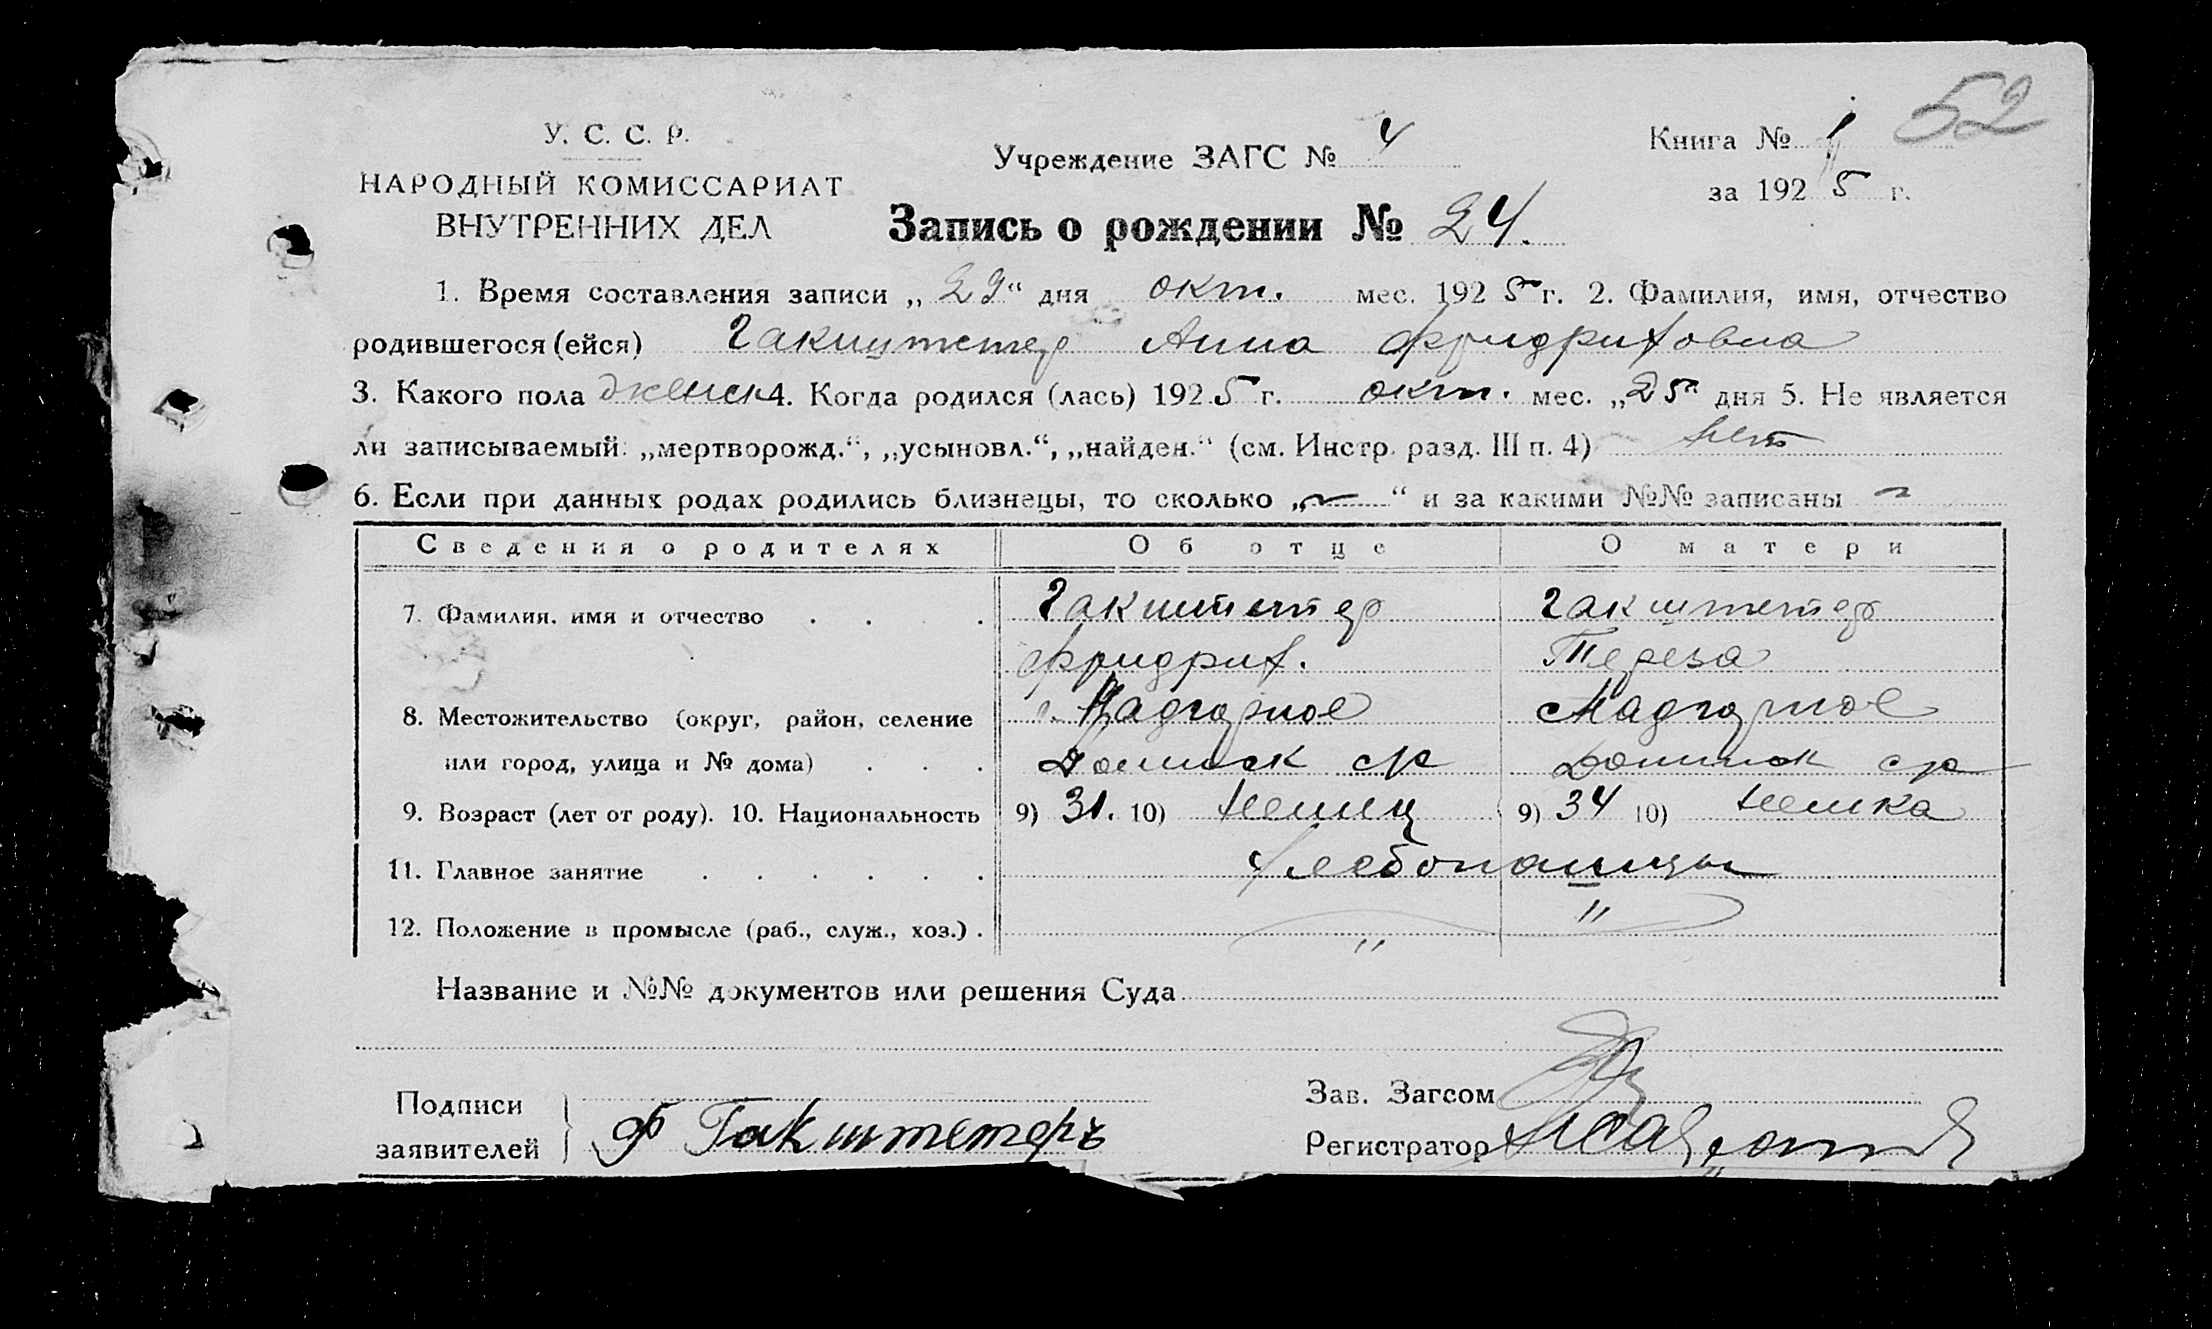 52
У. С. С. Р.
НАРОДНЫЙ КОМИССАРИАТ
ВНУТРЕННИХ ДЕЛ
Учреждение ЗАГС № 4
Книга № 1
за 1925 г.
Запись о рождении № 24.
1. Время составления записи „29“ дня окт. мес. 1925 г. 2. Фамилия, имя, отчество
родившегося (ейся) Гакштетер Анна Фридриховна
3. Какого пола женск 4. Когда родился (лась) 1925 г. окт. мес. „25“ дня 5. Не является
ли записываемый: „мертворожд.“, „усыновл.“, „найден.“ (см. Инстр. разд. III п. 4) нет
6. Если при данных родах родились близнецы, то сколько „—“ и за какими №№ записаны —
Сведения о родителях Об отце О матери
7. Фамилия, имя и отчество . . . . Гакштетер Гакштетер
Фридрих. Тереза
8. Местожительство (округ, район, селение Надгорное Надгорное
или город, улица и № дома) . . . с/р с/р
9. Возраст (лет от роду). 10. Национальность 9) 31. 10) Немец 9) 34 10) Немка
11. Главное занятие . . . . . . Хлебопашцы
12. Положение в промысле (раб., служ., хоз.) . " "
Название и №№ документов или решения Суда
Подписи
заявителей
Ф Гакштетеръ
Зав. Загсом
Регистратор